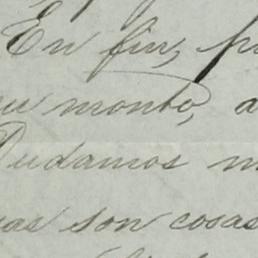 En fin, p
su monto, a
Dudamos m
as son cosas